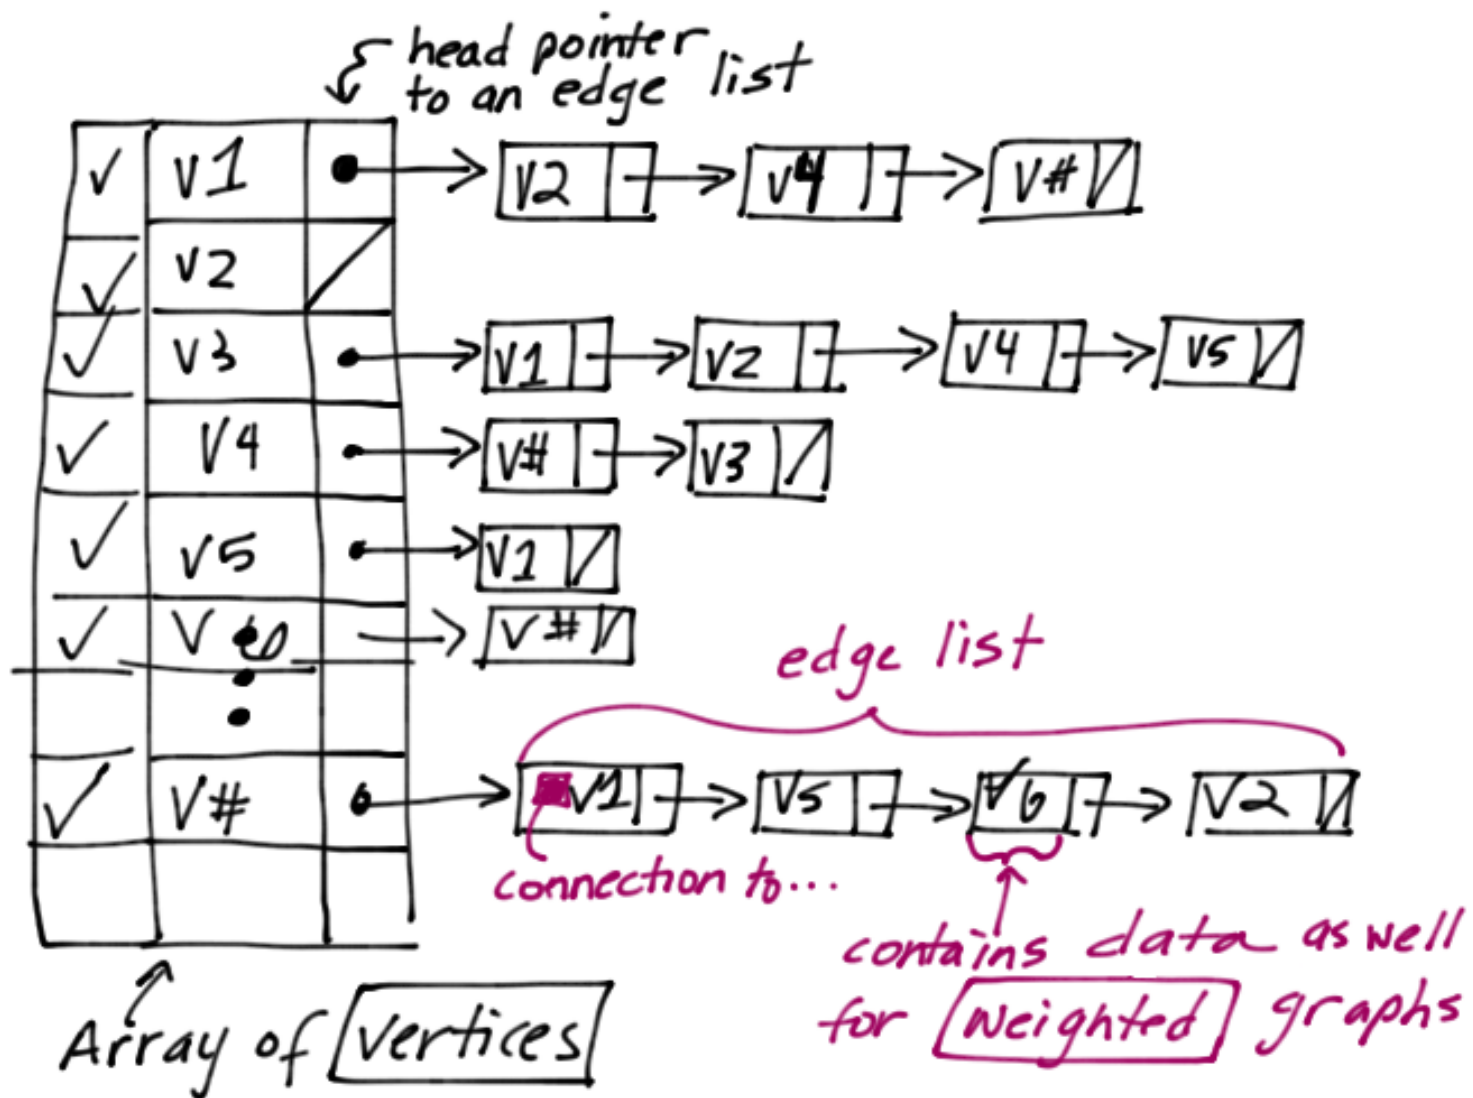 head pointer
to an edge list
✓ v1 v2 v4 v#
✓ v2
✓ v3 v1 v2 v4 v5
✓ v4 v# v3
✓ v5 v1
✓ v v#
edge list
✓ v# v1 v5 v6 v2
connection to...
contains data as well
for weighted graphs
Array of vertices